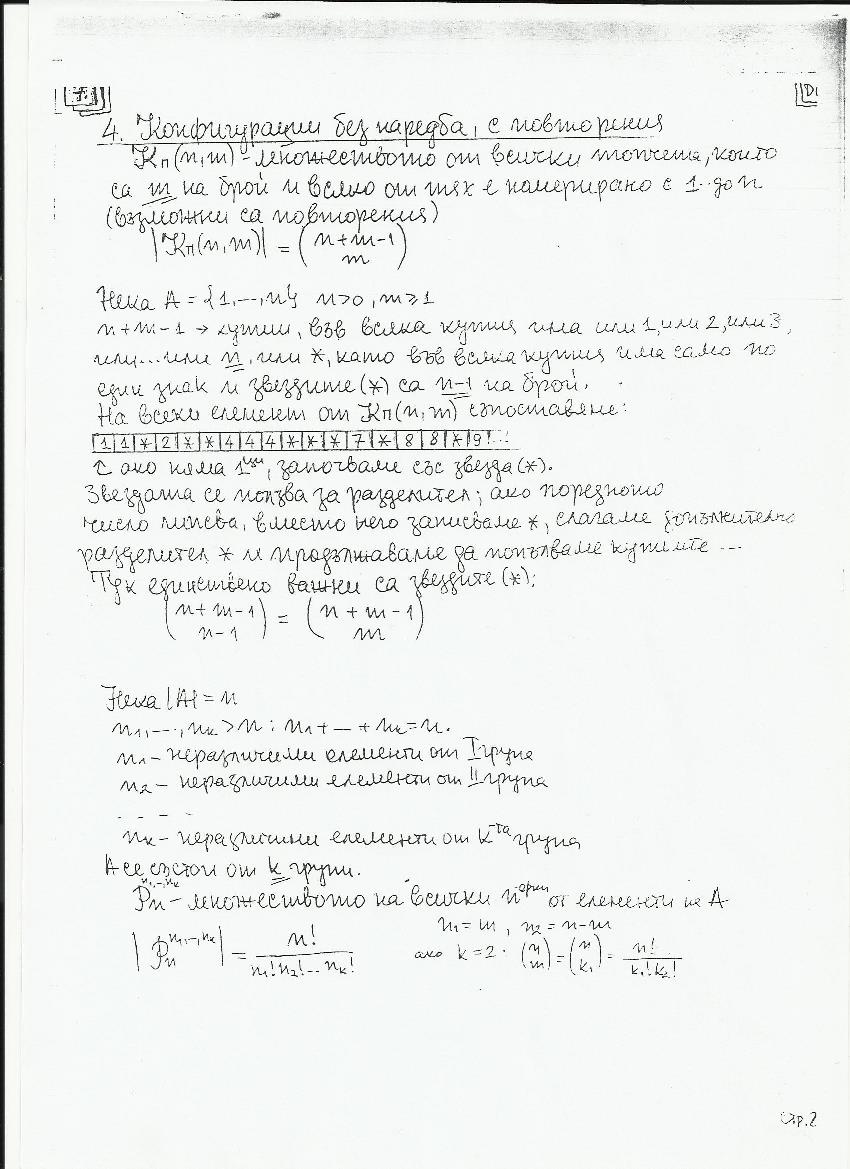 4. Конфигурации без наредба, с повторения
Kп(n,m) - множеството от всички топчета, които
са m на брой и всяко от тях е номерирано с 1..до n
(възможни са повторения)
|Kп(n,m)| = (n+m-1 m)
Нека A = {1,...,n} n>0, m≥1
n+m-1 → кутии, във всяка кутия има или 1, или 2, или 3,
или... или n, или *, като във всяка кутия има само по
един знак и звездите (*) са n-1 на брой.
На всеки елемент от Kп(n,m) съпоставяме:
1 1 * 2 * * 4 4 4 * * * 7 * 8 8 * 9 ...
↑ ако няма 1ци, започваме със звезда (*).
Звездата се ползва за разделител; ако поредното
число липсва, вместо него записваме *, слагаме допълнително
разделител * и продължаваме да попълваме кутиите ...
Тук единствено важни са звездите (*):
(n+m-1 n-1) = (n+m-1 m)
Нека |A| = n
n1,...,nk > n : n1 + ... + nk = n.
n1 - неразличими елементи от I група
n2 - неразличими елементи от II група
- - - -
nk - неразличими елементи от k-та група
A се състои от k групи.
Pn n1,...,nk - множеството на всички n орки от елементи на A
n1 = m, n2 = n-m
|Pn n1,...,nk| = n! / n1! n2! ... nk! ако k=2. (n m) = (n k1) = n! / k1! k2!
Стр.2